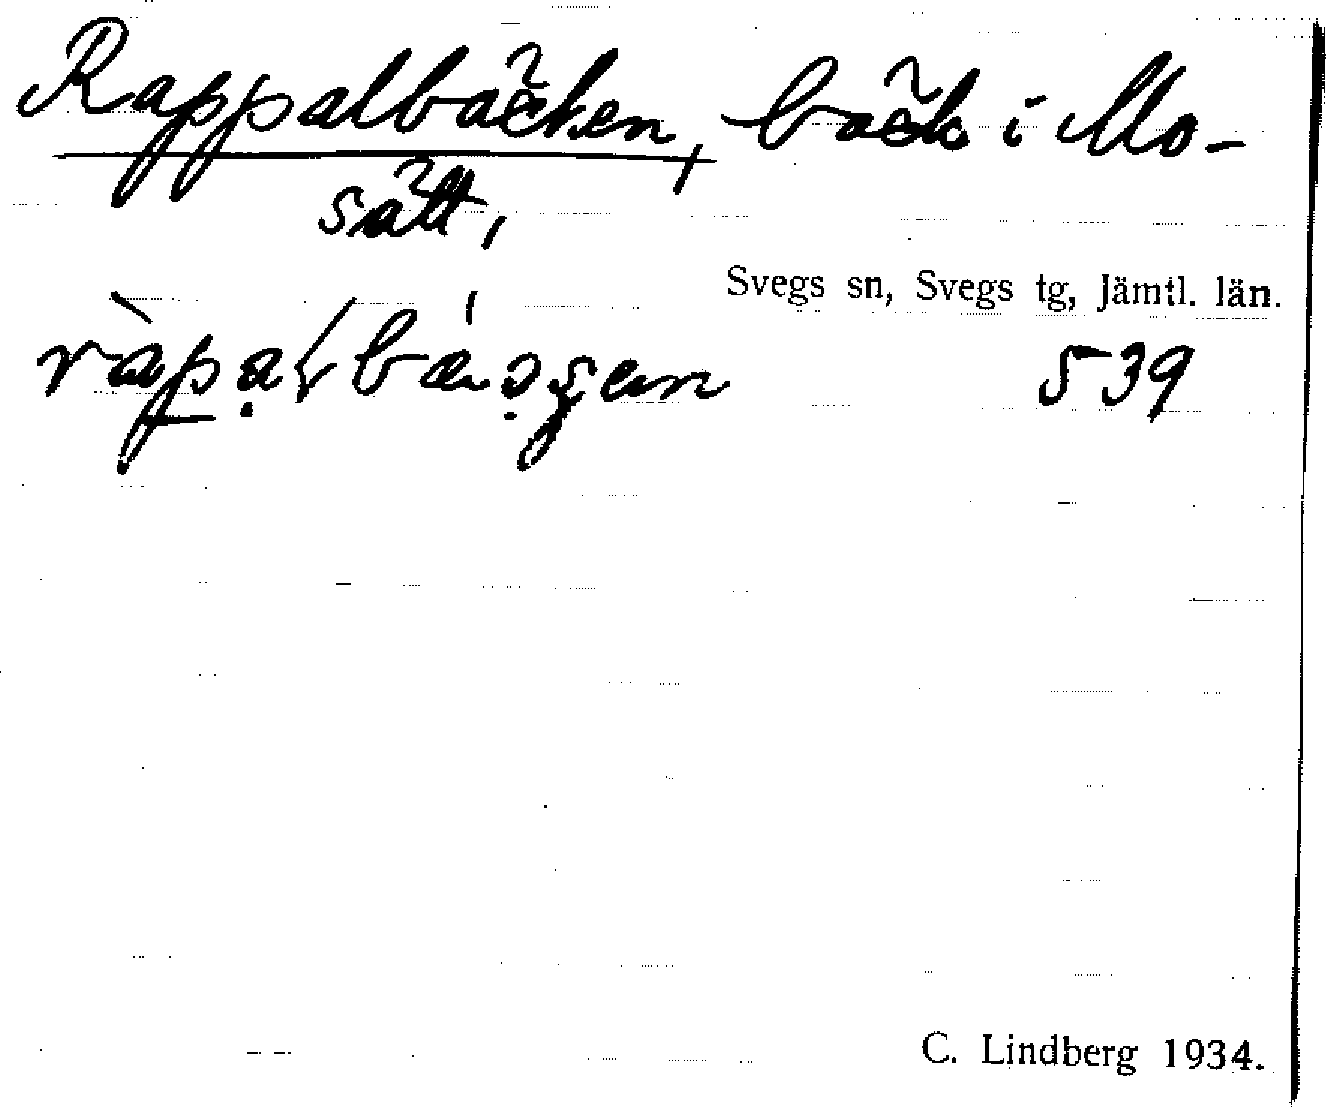 Rappalbäcken, bäck i Mo-
sätt,
Svegs sn, Svegs tg, Jämtl. län.
539
C. Lindberg 1934.